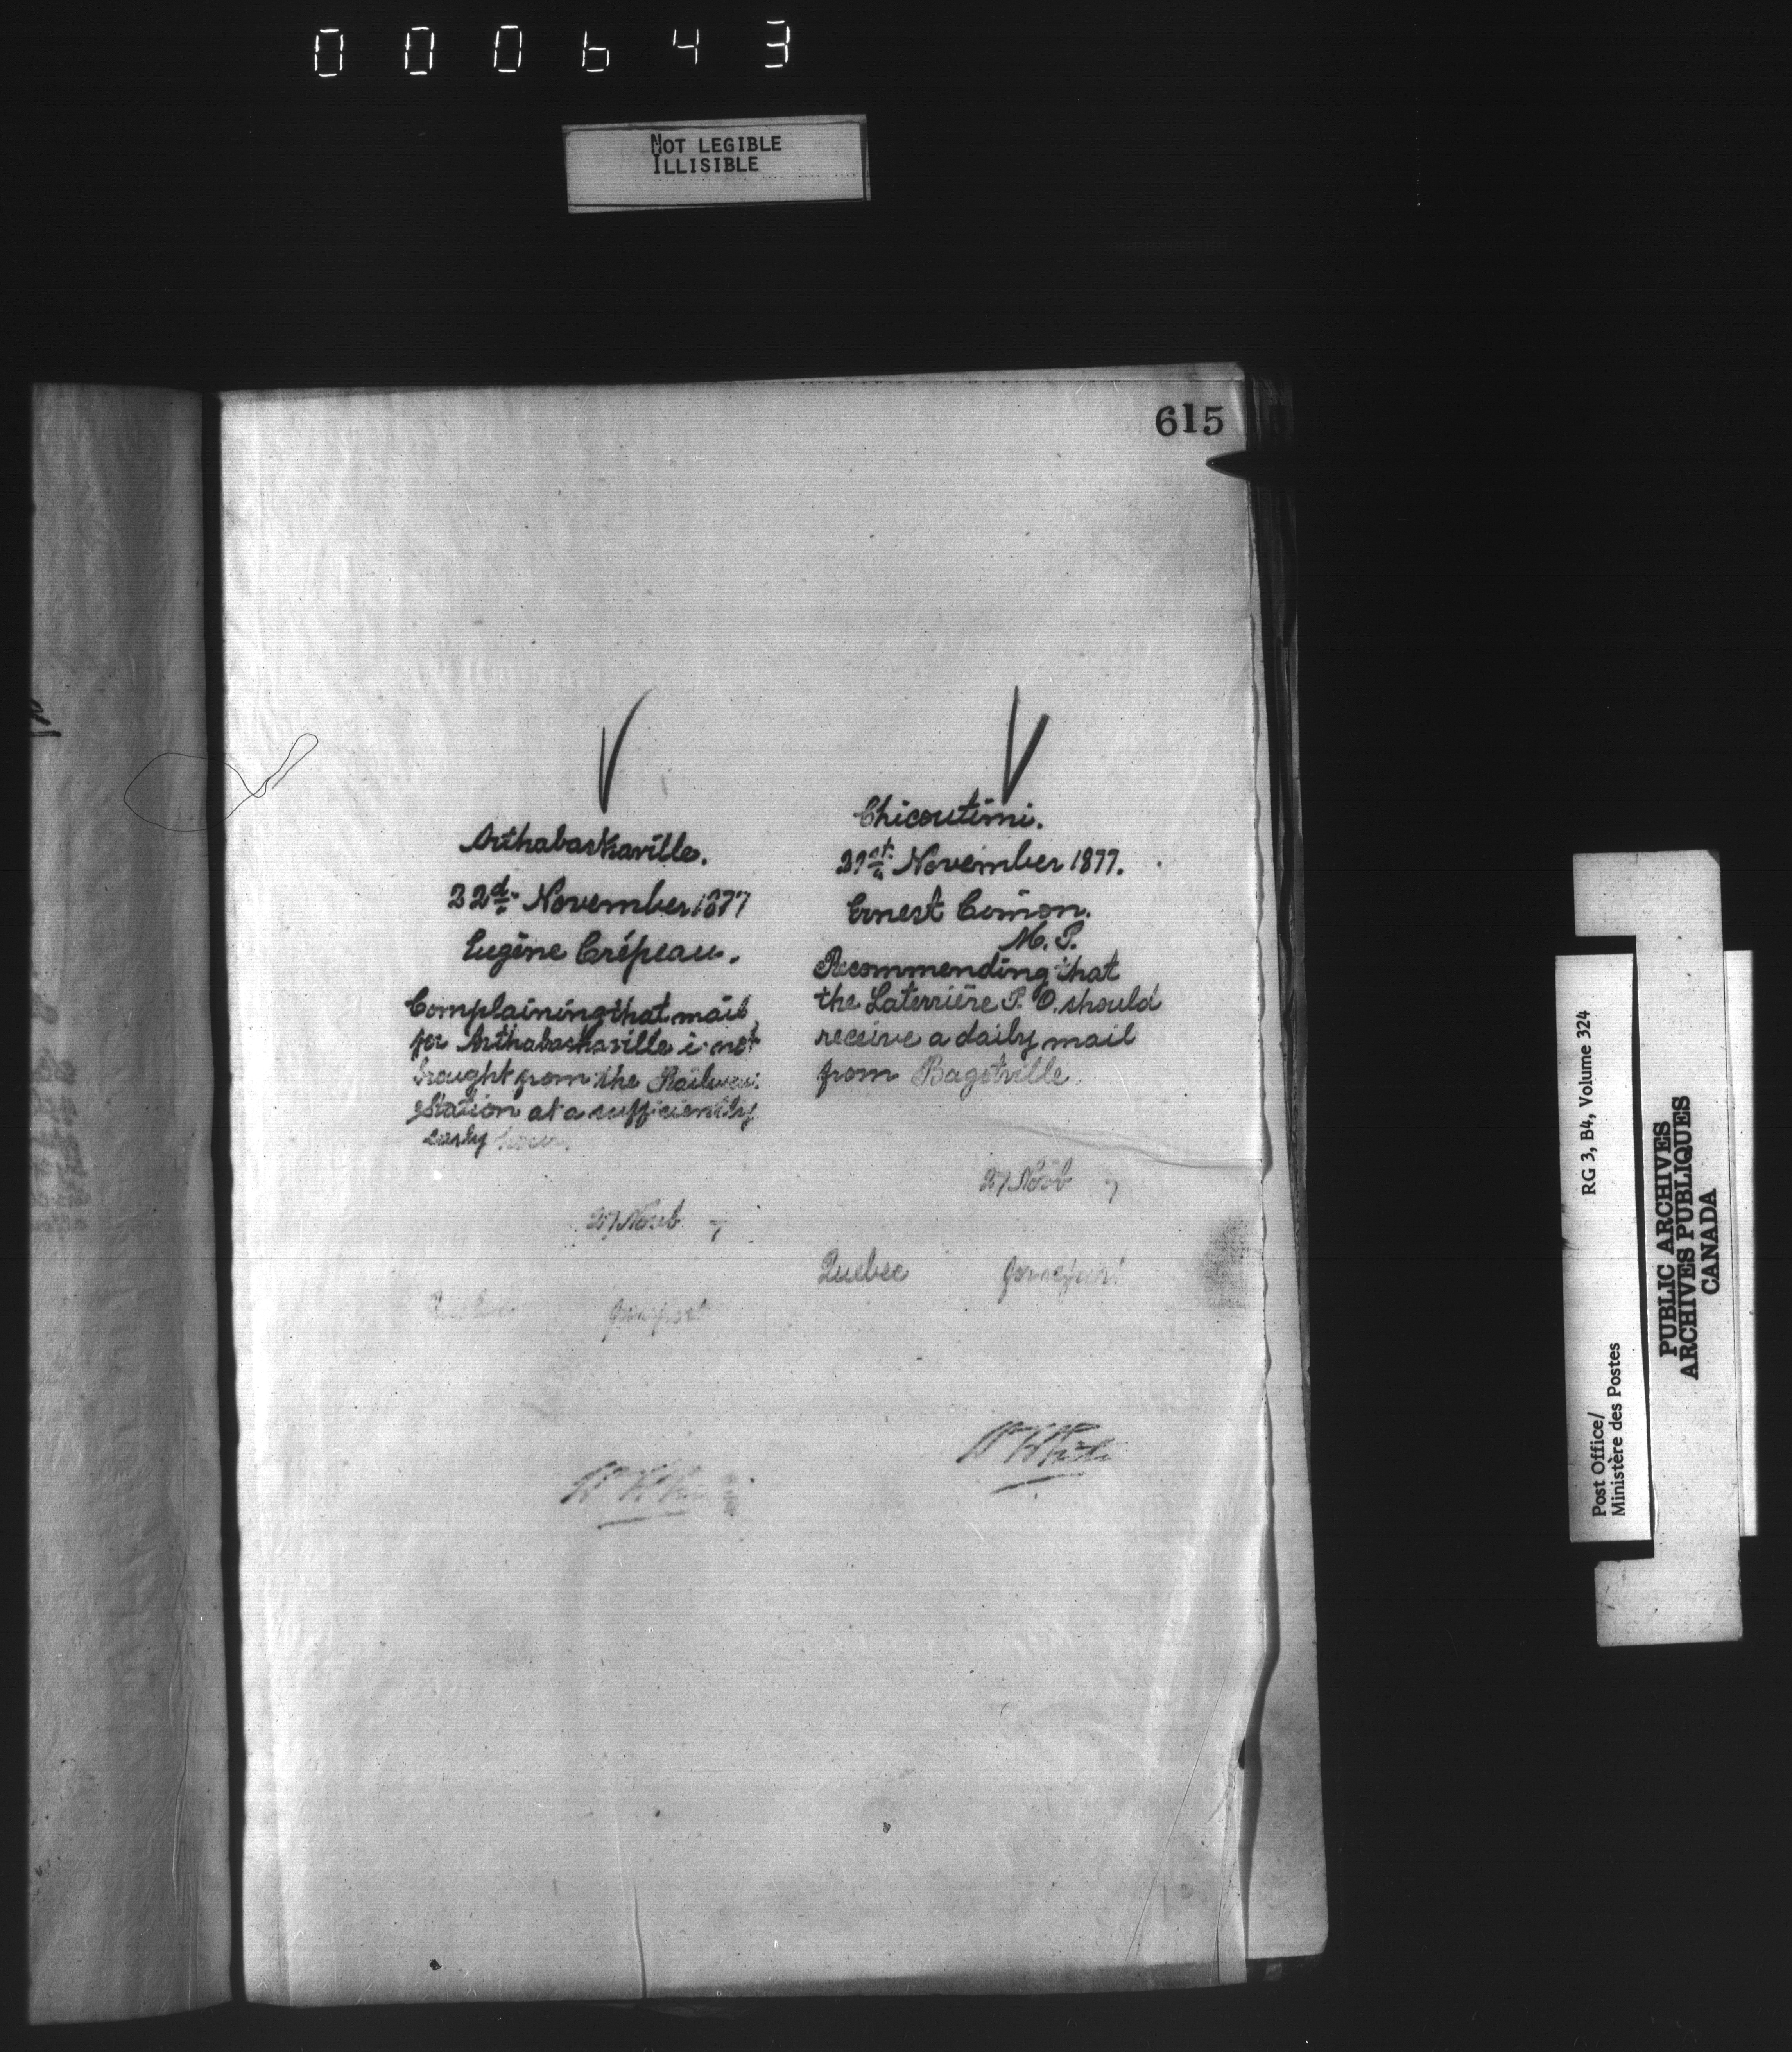 000643
NOT LEGIBLE
ILLISIBLE
615
Arthabaskaville.
22d. November 1877
Eugène Crépeau.
Complaining that mail
for Arthabaskaville is not
brought from the Railway
Station at a sufficiently
early hour.
27 Novb 7
for report
Chicoutimi.
21st. November 1877.
Ernest Cimon.
M. P.
Recommending that
the Laterrière P. O. should
receive a daily mail
from Bagotville.
27 Novb 7
Quebec for report
W H White
RG 3, B4, Volume 324
Post Office/
Ministère des Postes
PUBLIC ARCHIVES
ARCHIVES PUBLIQUES
CANADA